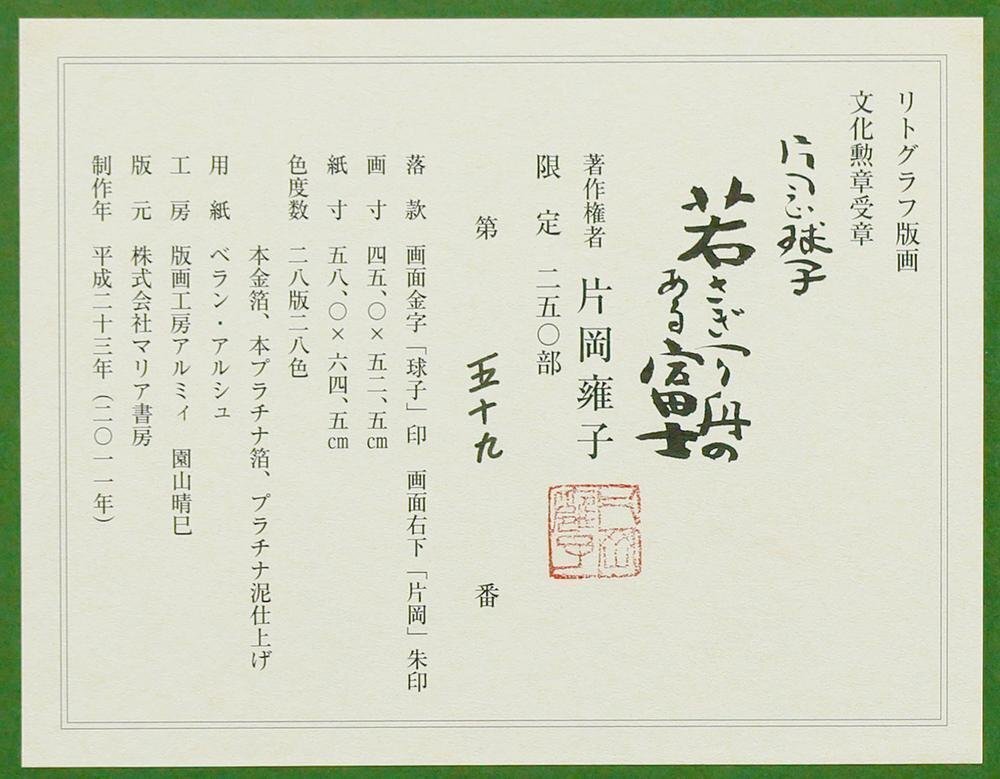 リトグラフ版画
文化勲章受章
片岡球子
若さぎつり舟の
ある富士
著作権者 片岡雍子
限定 二五〇部
第 五十九 番
落款 画面金字「球子」印 画面右下「片岡」朱印
画寸 四五、〇×五二、五㎝
紙寸 五八、〇×六四、五㎝
色度数 二八版二八色
本金箔、本プラチナ箔、プラチナ泥仕上げ
用紙 ベラン・アルシュ
工房 版画工房アルミィ 園山晴巳
版元 株式会社マリア書房
制作年 平成二十三年（二〇一一年）